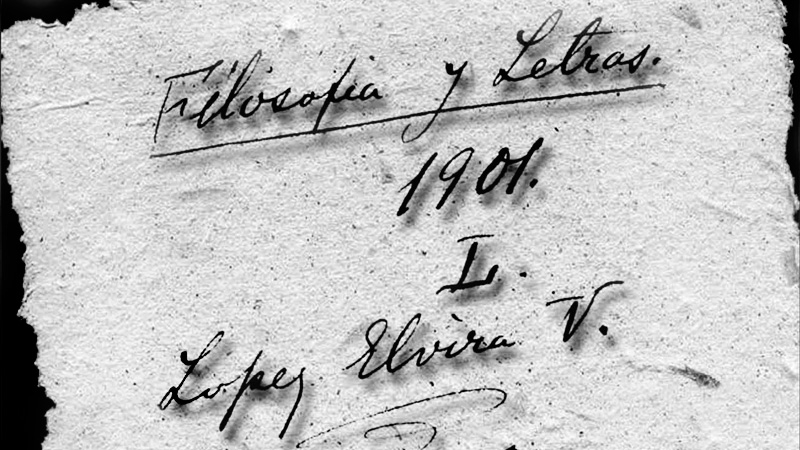 Filosofia y Letras.
1901.
L.
Lopez Elvira V.